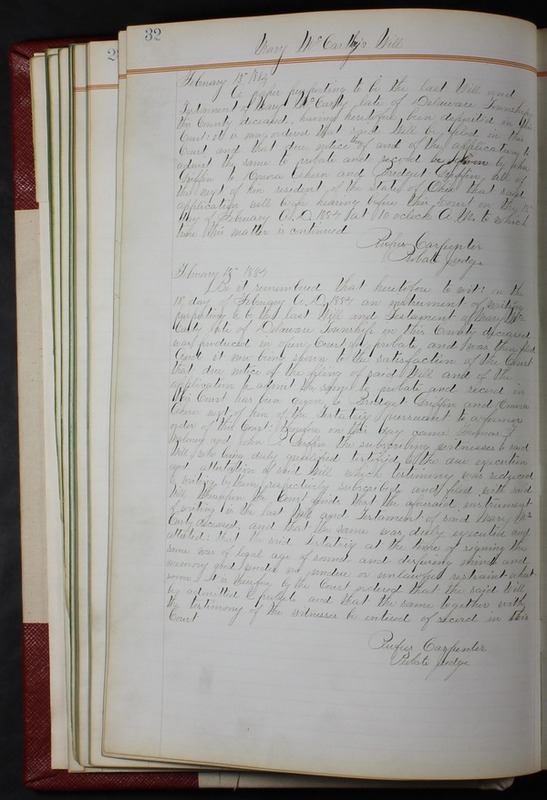 32
Mary Mc Carthy's Will
February 13" 1884
A paper purporting to be the last Will and
Testament of Mary McCarty late of Delaware Township
this County deceased, having heretofore been deposited in this
Court: it is now ordered that said Will be filed in this
Court and that due notice thereof and of the application to
admit the same to probate and record be given by John
Griffin to Bridget Griffin all of
the next of kin resident of the State of Ohio that said
application will be for hearing before this Court on the
day of February A.D. 1884 at 10 oclock A.M. to which
time this matter is continued
Rufus Carpenter
Probate Judge
February 15" 1884
Be it remembered that heretofore to wit: on the
day of February A.D. 1884 an instrument of writing
purporting to be the last Will and Testament of Mary Mc
Carty late of Delaware Township in this County deceased
was produced in open Court for probate, and was then filed
it now being shown to the satisfaction of the Court
that due notice of the filing of said Will and of the
application to admit the same to probate and record in
this Court has been given to Bridget Griffin and
next of kin of the Testatrix pursuant to a former
order of this Court: Therefore on this day came
and John Griffin the subscribing witnesses to said
Will, who being duly qualified testified to the due execution
and attestation of said Will which testimony was reduced
to writing by them respectively subscribed and filed with said
Will Whereupon the Court finds that the aforesaid instrument
of writing is the last Will and Testament of said Mary Mc
Carty deceased, and that the same was duly executed and
attested: that the said Testatrix at the time of signing the
same was of legal age of sound and disposing mind and
memory and under no undue or unlawful restraint what
soever: It is therefore by the Court ordered that the said Will
be admitted to probate and that the same together with
the testimony of the witnesses be entered of record in this
Court
Rufus Carpenter
Probate Judge